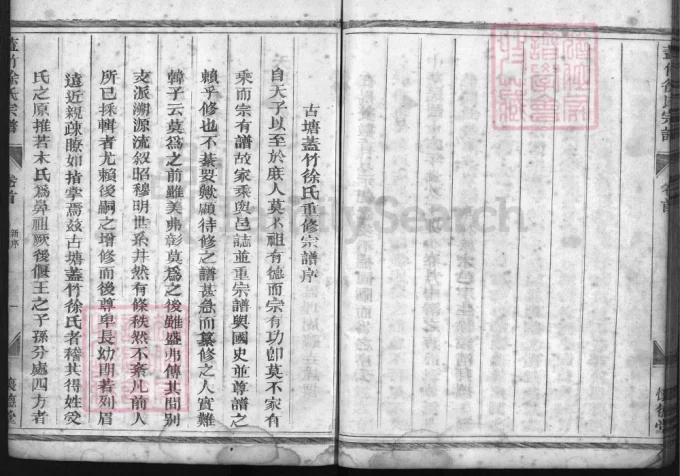 蓋竹徐氏宗譜
卷首
古塘蓋竹徐氏重修宗譜序
自天子以至於庶人莫不祖有德而宗有功卽莫不家有
乘而宗有譜故家乘與邑誌並重宗譜與國史並尊譜之
賴乎修也不綦要歟顧待修之譜甚急而纂修之人實難
韓子云莫爲之前雖美弗彰莫爲之後雖盛弗傳其間別
支派溯源流叙昭穆明世系井然有條秩然不紊凡前人
所已採輯者尤賴後嗣之增修而後尊卑長幼朗若列眉
遠近親疎瞭如指掌焉茲古塘蓋竹徐氏者稽其得姓受
氏之原推若木氏爲鼻祖厥後偃王之子孫分處四方者
蓋竹徐氏宗譜
卷首
新序
一
懷德堂
FamilySearch